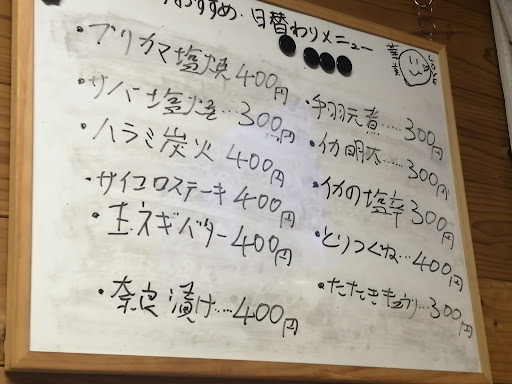 おすすめ・日替わりメニュー
・ブリカマ塩焼 400円
・サバ塩焼…300円
・ハラミ炭火 400円
・サイコロステーキ 400円
・玉ネギバター 400円
・奈良漬け……400円
LOVE
・手羽元煮……300円
・イカ明太……300円
・イカの塩辛 300円
・とりつくね…400円
・たたきキュウリ…300円